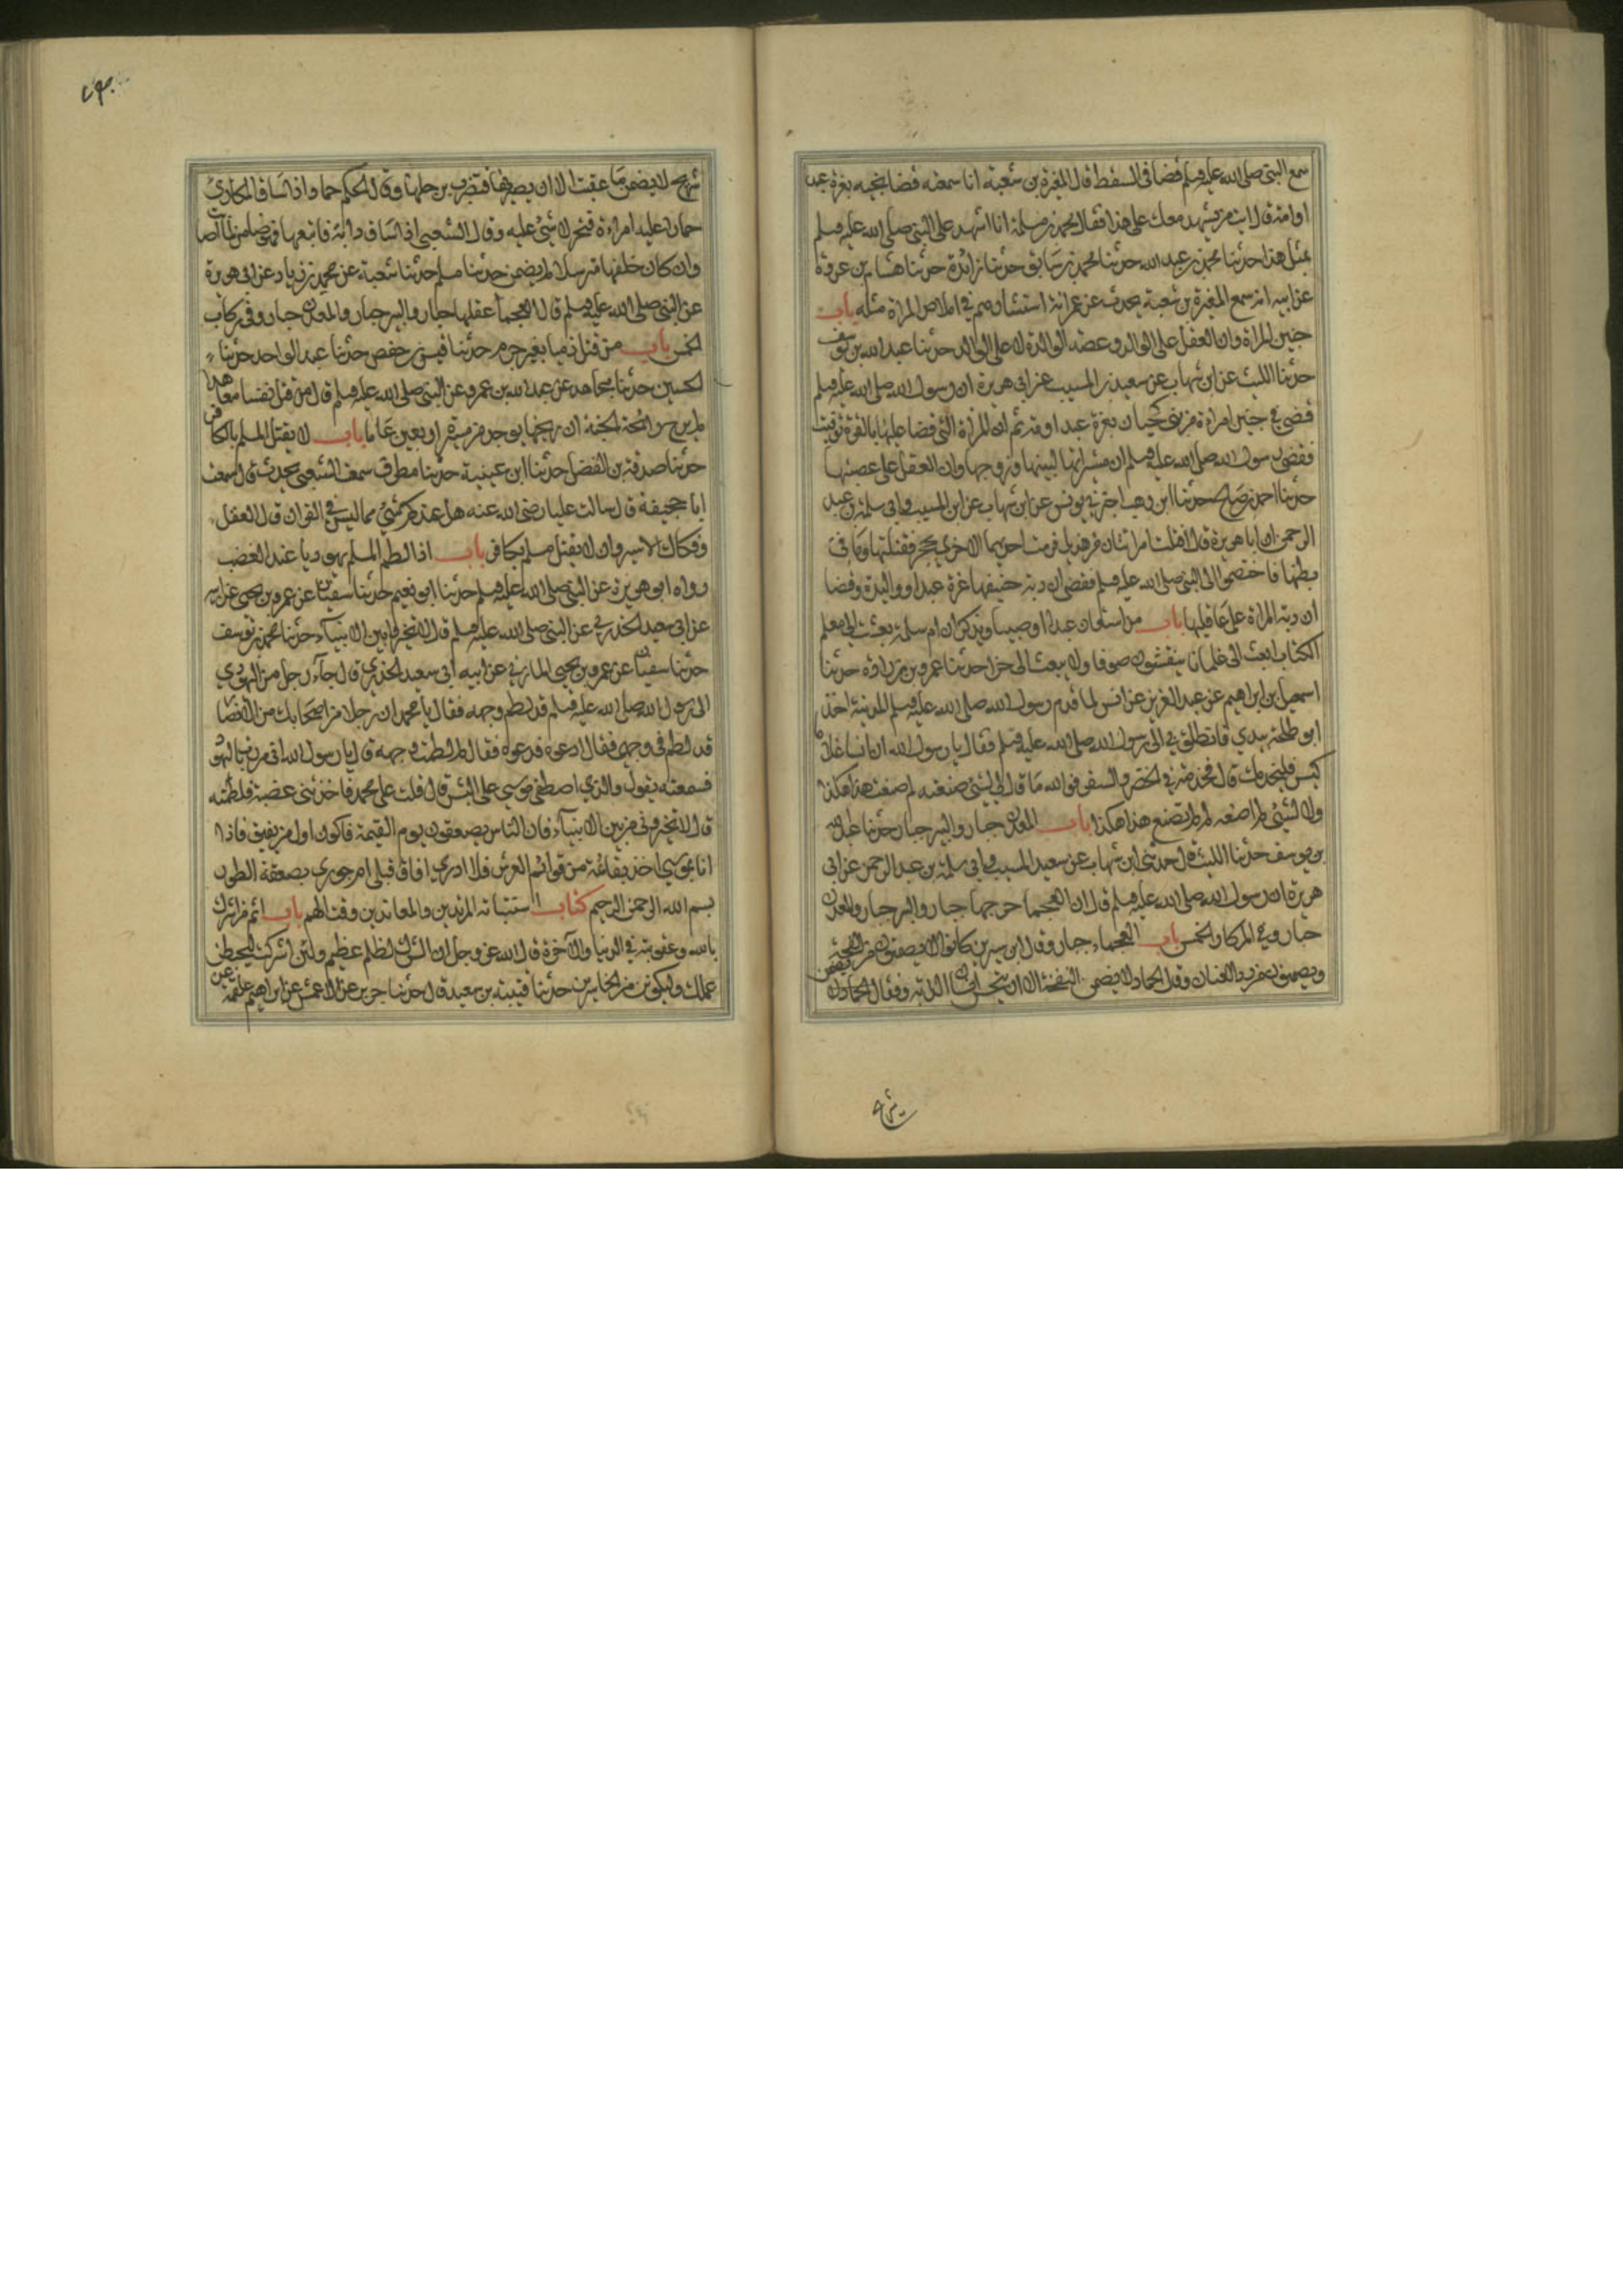 سمع النبي صلى الله عليه وسلم قضا في السقط قال المغيرة بن شعبة انا سمعته قضا فيه بغرة عبد
او امة قال ايت من يشهد معك على هذا فقال محمد بن مسلمة انا اشهد على النبي صلى الله عليه وسلم
بمثل هذا حدثنا محمد بن عبد الله حدثنا محمد بن سابق حدثنا زائدة حدثنا هشام بن عروة
عن ابيه انه سمع المغيرة بن شعبة يحدث عن عمر انه استشارهم في املاص المراة مثله باب
جنين المراة وان العقل على الوالد وعصبة الوالد لا على الولد حدثنا عبد الله بن يوسف
حدثنا الليث عن ابن شهاب عن سعيد بن المسيب عن ابي هريرة ان رسول الله صلى الله عليه وسلم
قضى في جنين امراة من بني لحيان بغرة عبد او امة ثم ان المراة التي قضا عليها بالغرة توفيت
فقضى رسول الله صلى الله عليه وسلم ان ميراثها لبنيها وزوجها وان العقل على عصبتها
حدثنا احمد بن صالح حدثنا ابن وهب اخبرني يونس عن ابن شهاب عن ابن المسيب وابي سلمة بن عبد
الرحمن ان ابا هريرة قال اقتلت امراتان من هذيل فرمت احديهما الاخرى بحجر فقتلتها وما في
بطنها فاختصموا الى النبي صلى الله عليه وسلم فقضى ان دية جنينها غرة عبد او وليدة وقضا
ان دية المراة على عاقلتها باب من استعان عبدا او صبيا ويذكر ان ام سلمة بعثت الى معلم
الكتاب ابعث الى غلمانا ينفشون صوفا ولا تبعث الى حرا حدثنا عمرو بن زرارة حدثنا
اسمعيل بن ابراهيم عن عبد العزيز عن انس لما قدم رسول الله صلى الله عليه وسلم المدينة اخذ
ابو طلحة بيدي فانطلق بي الى رسول الله صلى الله عليه وسلم فقال يا رسول الله ان انسا غلام
كيس فليخدمك قال فخدمته في الحضر والسفر فوالله ما قال لي لشيئ صنعته لم صنعت هذا هكذا
ولا لشيئ لم اصنعه لم لم تصنع هذا هكذا باب المعدن جبار والبير جبار حدثنا عبد الله
بن يوسف حدثنا الليث قال حدثني ابن شهاب عن سعيد بن المسيب وابي سلمة بن عبد الرحمن عن ابي
هريرة ان رسول الله صلى الله عليه وسلم قال ان العجما جرحها جبار والبير جبار والمعدن
جبار وفي الركاز الخمس باب العجماء جبار وقال ابن سيرين كانوا لا يضمنون من النفحة
ويضمنون من رد العنان وقال حماد لا يضمن النفحة الا ان ينخس انسان الدابة وقال
شريح لا يضمن ما عقبت الا ان يضربها فتضرب برجلها وقال الحكم وحماد اذا ساق المكاري
حمارا عليه امراءة فتخر لا شيئ عليه وقال الشعبي اذا ساق دابة فاتعبها فهو ضامن لما اصابت
وان كان خلفها مترسلا لم يضمن حدثنا مسلم حدثنا شعبة عن محمد بن زياد عن ابي هريرة
عن النبي صلى الله عليه وسلم قال العجما عقلها جبار والبير جبار والمعدن جبار وفي الركاز
الخمس باب من قتل ذميا بغير جرم حدثنا قيس بن حفص حدثنا عبد الواحد حدثنا
الحسين حدثنا مجاهد عن عبد الله بن عمرو عن النبي صلى الله عليه وسلم قال من قتل نفسا معاهدا
لم يرح رائحة الجنة ان ريحها يوجد من مسيرة اربعين عاما باب لا يقتل المسلم بالكافر
حدثنا صدقة بن الفضل حدثنا ابن عيينة حدثنا مطرف سمعت الشعبي يحدث قال سمعت
ابا جحيفة قال سالت عليا رضي الله عنه هل عندكم شيئ مما ليس في القران قال العقل
وفكاك الاسير وان لا يقتل مسلم بكافر باب اذا لطم المسلم يهوديا عند الغضب
رواه ابو هريرة عن النبي صلى الله عليه وسلم حدثنا ابو نعيم حدثنا سفيان عن عمرو بن يحيى عن ابيه
عن ابي سعيد الخدري عن النبي صلى الله عليه وسلم قال لا تخيروا بين الانبياء حدثنا محمد بن يوسف
حدثنا سفيان عن عمرو بن يحيى المازني عن ابيه ابي سعيد الخدري قال جاء رجل من اليهود
الى رسول الله صلى الله عليه وسلم قد لطم وجهه فقال يا محمد ان رجلا من اصحابك من الانصار
قد لطم في وجهي فقال ادعوه فدعوه فقال لم لطمت وجهه قال يا رسول الله اني مررت باليهود
فسمعته يقول والذي اصطفى موسى على البشر قال قلت على محمد فاخذتني غضبة فلطمته
قال لا تخيروني من بين الانبياء فان الناس يصعقون يوم القيمة فاكون اول من يفيق فاذا
انا بموسى اخذ بقائمة من قوائم العرش فلا ادري افاق قبلي ام جوزي بصعقة الطور
بسم الله الرحمن الرحيم كتاب استتابة المرتدين والمعاندين وقتالهم باب اثم من اشرك
بالله وعقوبته في الدنيا والآخرة قال الله عز وجل ان الشرك لظلم عظيم ولئن اشركت ليحبطن
عملك ولتكونن من الخاسرين حدثنا قتيبة بن سعيد قال حدثنا جرير عن الاعمش عن ابراهيم عن علقمة